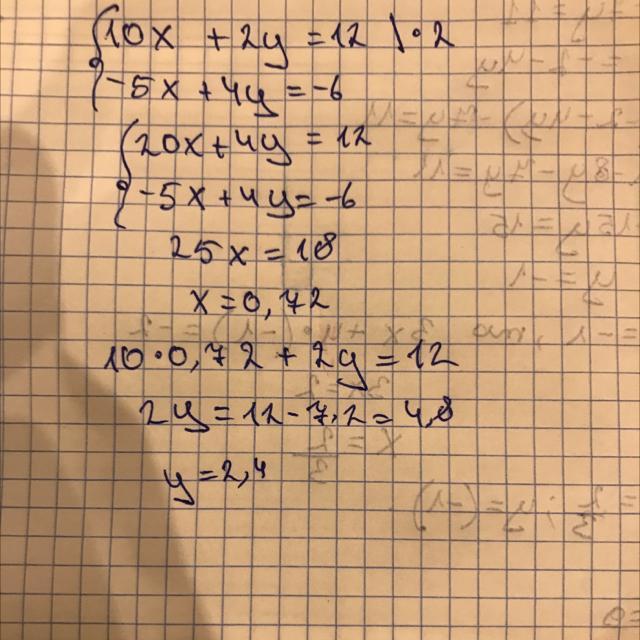 10x + 2y = 12 \ · 2
-5x + 4y = -6
20x + 4y = 12
-5x + 4y = -6
25x = 18
x = 0,72
10 · 0,72 + 2y = 12
2y = 12 - 7,2 = 4,8
y = 2,4